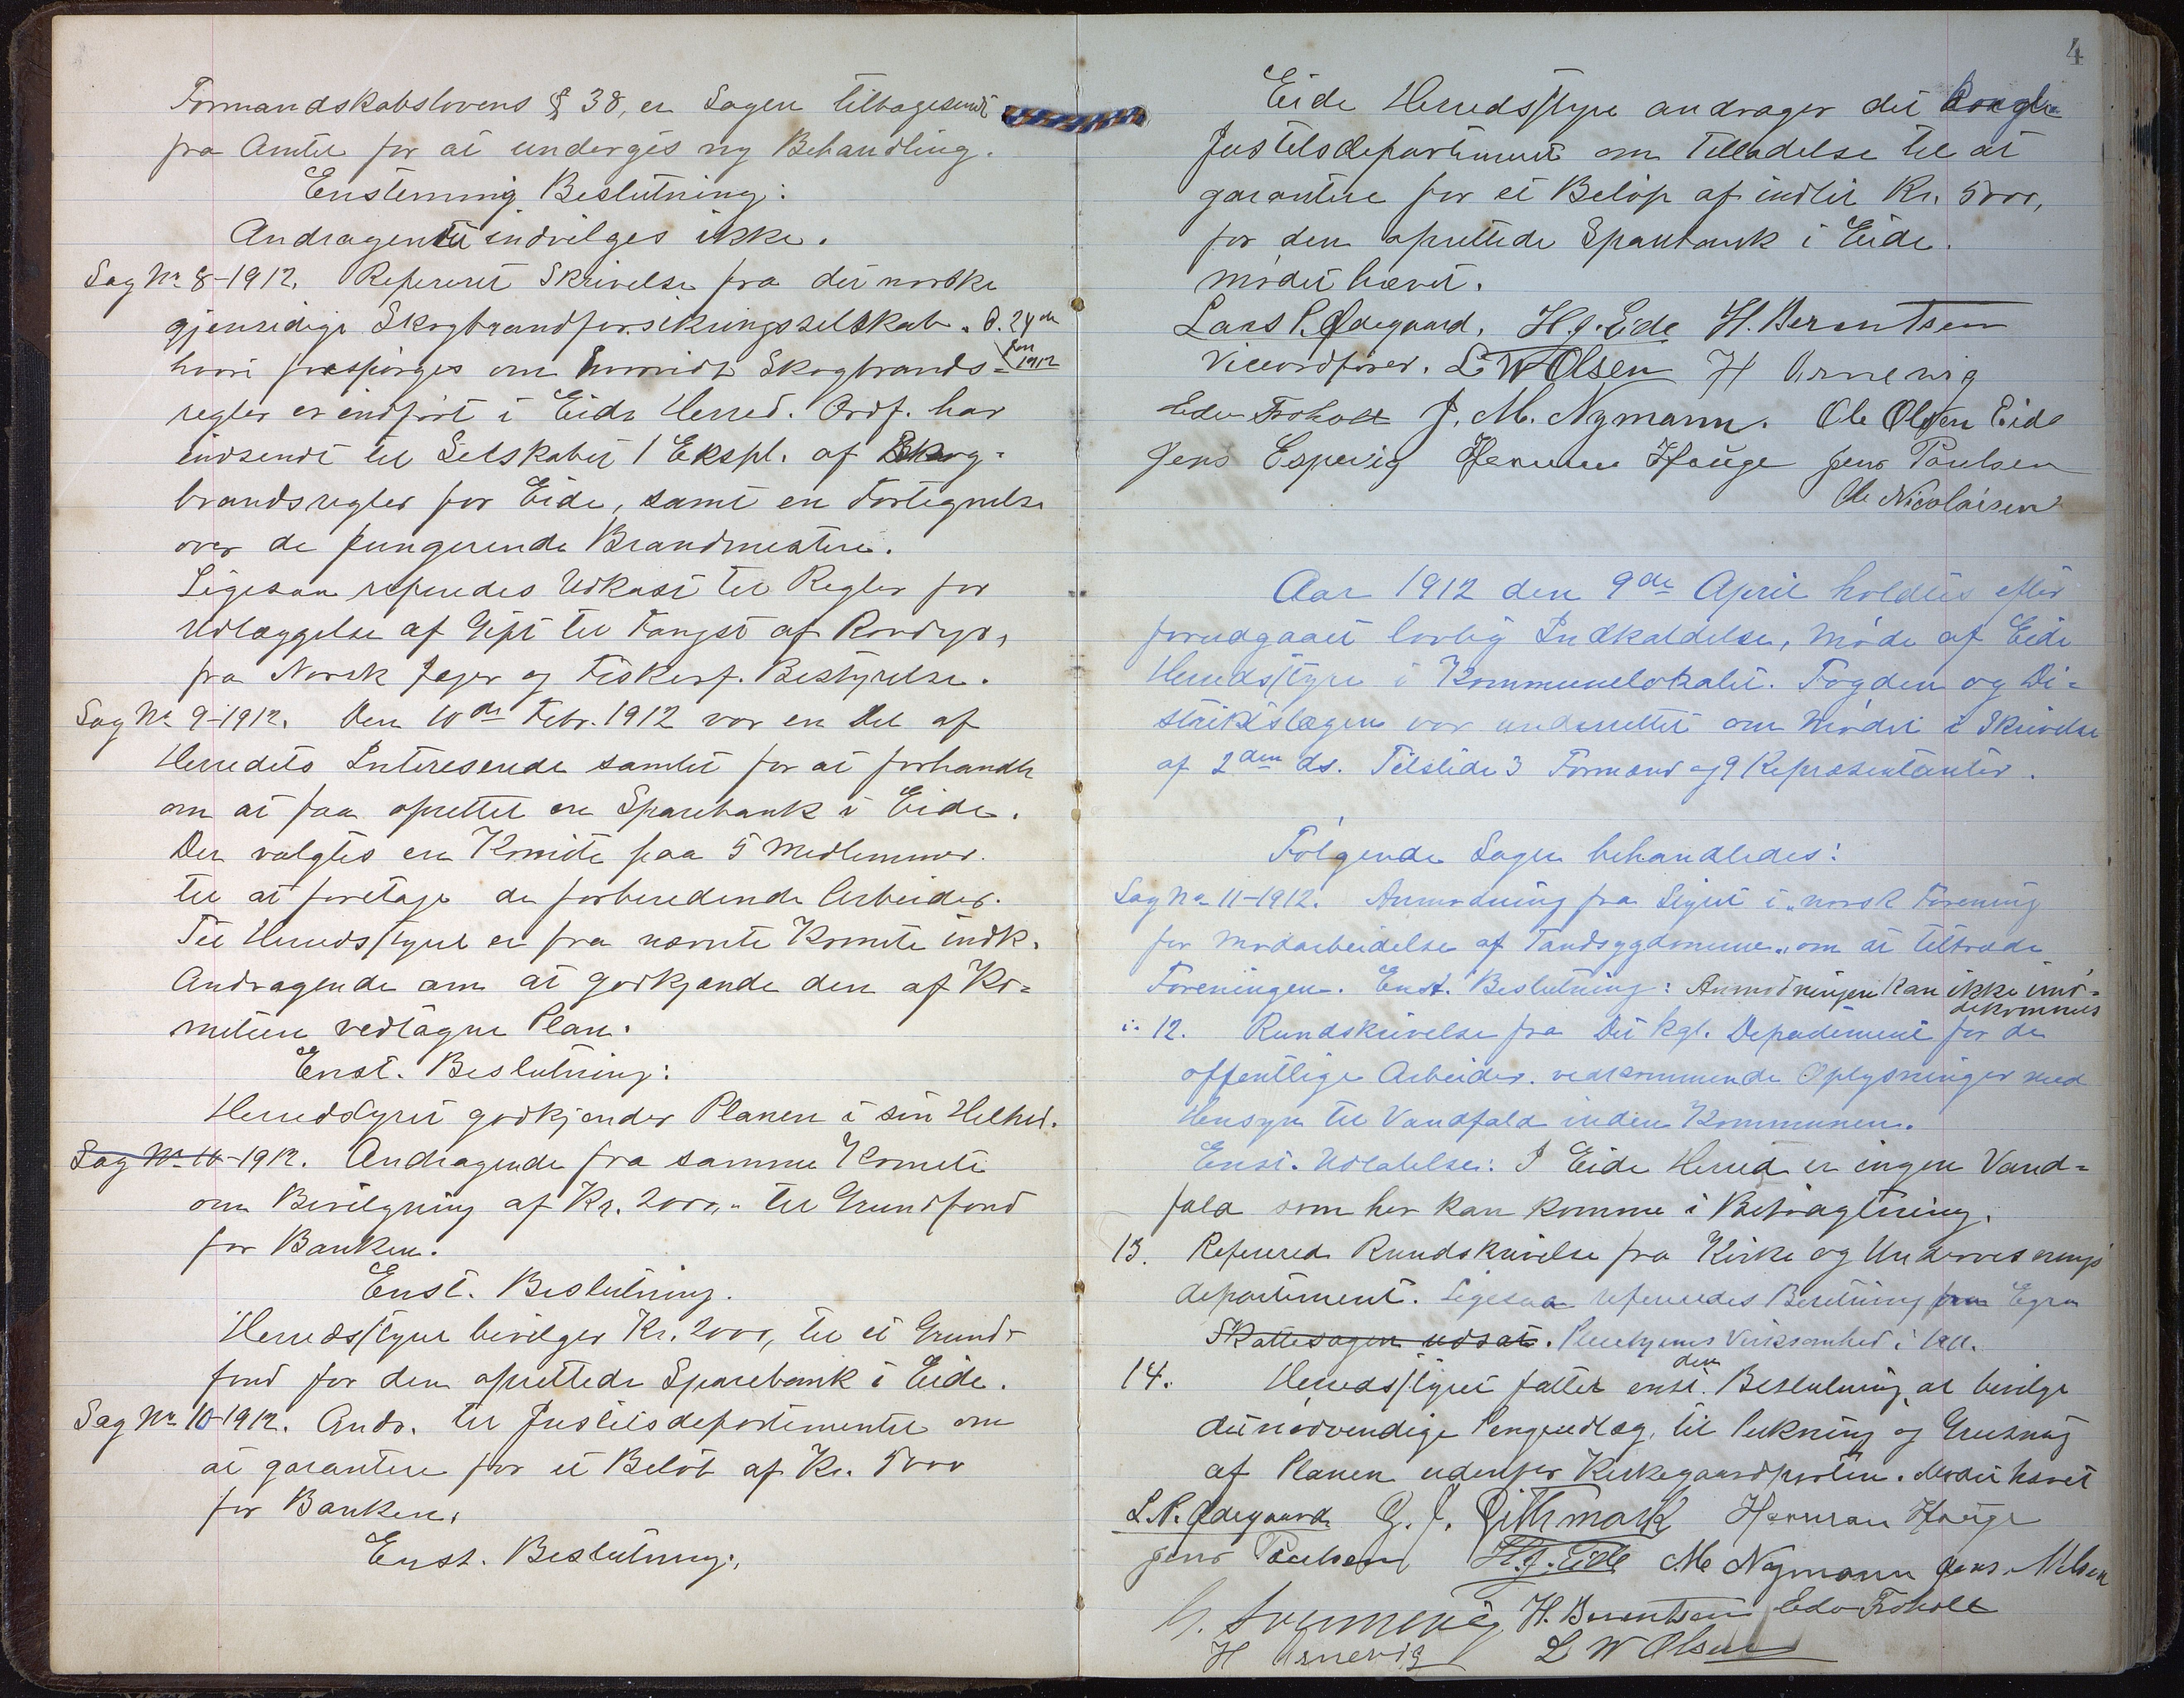 Formandskabslovens § 38, er Sagen tilbagesendt
fra Amtet for at undergis ny Behandling.
Enstemmig Beslutning:
Andragendet indvilges ikke.
Sag No 8-1912. Refereret Skrivelse fra det norske
gjensidige Skogbrandforsikringsselskab. d. 24de
Jan 1912
hvori forespørges om hvorvidt Skogbrands-
regler er indført i Eide Herred. Ordf. har
indsendt til Selskabet 1 Ekspl. af Skog-
brandsregler for Eide, samt en Fortegnelse
over de fungerende Brandmestere.
Ligesaa referedes Udkast til Regler for
Udlæggelse af Gift til Fangst af Rovdyr,
fra Norsk Jæger og Fiskerf. Bestyrelse.
Sag No 9-1912. Den 10de Febr. 1912 var en Del af
Herredets Interesende samlet for at forhandle
om at faa oprettet en Sparebank i Eide.
Der valgtes en Komite paa 5 Medlemmer.
til at foretage de forberedende Arbeider.
Til Herredsstyret er fra nævnte Komite indk.
Andragende om at godkjende den af Ko-
miteen vedtagne Plan.
Enst. Beslutning:
Herredstyret godkjender Planen i sin Helhed.
Sag No 10-1912. Andragende fra samme Komite
om Bevilgning af Kr. 2000,- til Grundfond
for Banken.
Enst. Beslutning.
Herredsstyret bevilger Kr. 2000, til et Grund-
fond for den oprettede Sparebank i Eide.
Sag No 10-1912. Andr. til Justitsdepartementet om
at garantere for et Beløb af Kr. 5000
for Banken.
Enst. Beslutning.
4
Eide Herredsstyre andrager det kongle
Justitsdepartement om Tilladelse til at
garantere for et Beløp af indtil Kr. 5000,
for den oprettede Sparebank i Eide.
Mødet hævet.
Lars P. Ødegaard. H. J. Eide H. Berentsen
Viceordfører. L W Olsen H Arnevig
Edv Froholt J. M. Nymann. Ole Olsen Eide
Jens Espevig Herman Hauge Jens Poulsen
Ole Nicolaisen
Aar 1912 den 9de April holdtes efter
forudgaaet lovlig Indkaldelse, Møde af Eide
Herredsstyre i Kommunelokalet. Fogden og Di-
striktslægen var underrettet om Mødet i Skrivelse
af 2den ds. Tilstede 3 Formænd og 9 Repræsentanter.
Følgende Sager behandledes:
Sag No 11-1912. Anmodning fra Styret i "norsk Forening
for Modarbeidelse af Tandsygdomme", om at tiltræde
Foreningen. Enst. Beslutning: Anmodningen kan ikke imø-
dekommes
" 12. Rundskrivelse fra Det kgl. Departement for de
offentlige Arbeider. vedkommende Oplysninger med
Hensyn til Vandfald inden Kommunen.
Enst. Udtalelse: I Eide Herred er ingen Vand-
fald som her kan komme i Betragtning.
13. Referered Rundskrivelse fra Kirke og Undervisnings
departement. Ligesaa refereredes Beretning fra Egra
Skattesagen udsat. Plejehjems Virksomhed i 1911.
14. Herredsstyret fatter enst. den Beslutning at bevilge
det nødvendige Pengeudlæg, til Pukning og Grusning
af Planen udenfor Kirkegaardporten. Mødet hævet
L. P. Ødegaard G. J. Dithmark Herman Hauge
Jens Poulsen H. J. Eide M. Nymann Jens Nilsen
H. Berentsen Edv Froholt
H Arnevig L W Olsen